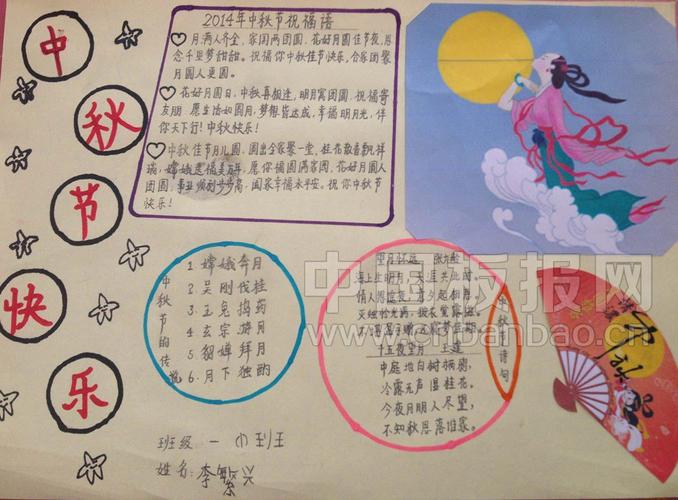 中
秋
节
快
乐
2014年中秋节祝福语
月满人齐全,家国两团圆,花好月圆佳节夜,思
念千里梦甜甜。祝福你中秋佳节快乐,合家团聚
月圆人更圆。
花好月圆日,中秋喜相逢,明月寓团圆,祝福寄
友朋 愿生活如圆月,梦想皆达成,幸福明月光,伴
你天下行!中秋快乐!
中秋佳节月儿圆,圆出全家聚一堂,桂花散香飘祥
瑞,嫦娥送福美万年,愿你福圆满家园,花好月圆人
团圆,事业顺利步步高,国家幸福永平安。祝你中秋节
快乐!
中秋节的传说
1.嫦娥奔月
2.吴刚伐桂
3.玉兔捣药
4.玄宗游月
5.貂婵拜月
6.月下独酌
望月怀远 张九龄
海上生明月,天涯共此时。
情人怨遥夜,竟夕起相思。
灭烛怜光满,披衣觉露滋。
十五夜望月 王建
中庭地白树栖鸦,
冷露无声湿桂花。
今夜月明人尽望,
不知秋思落谁家。
中秋节诗句
中秋
班级 一(1)班
姓名:李繁兴
中国板报网
www.cnbanbao.cn